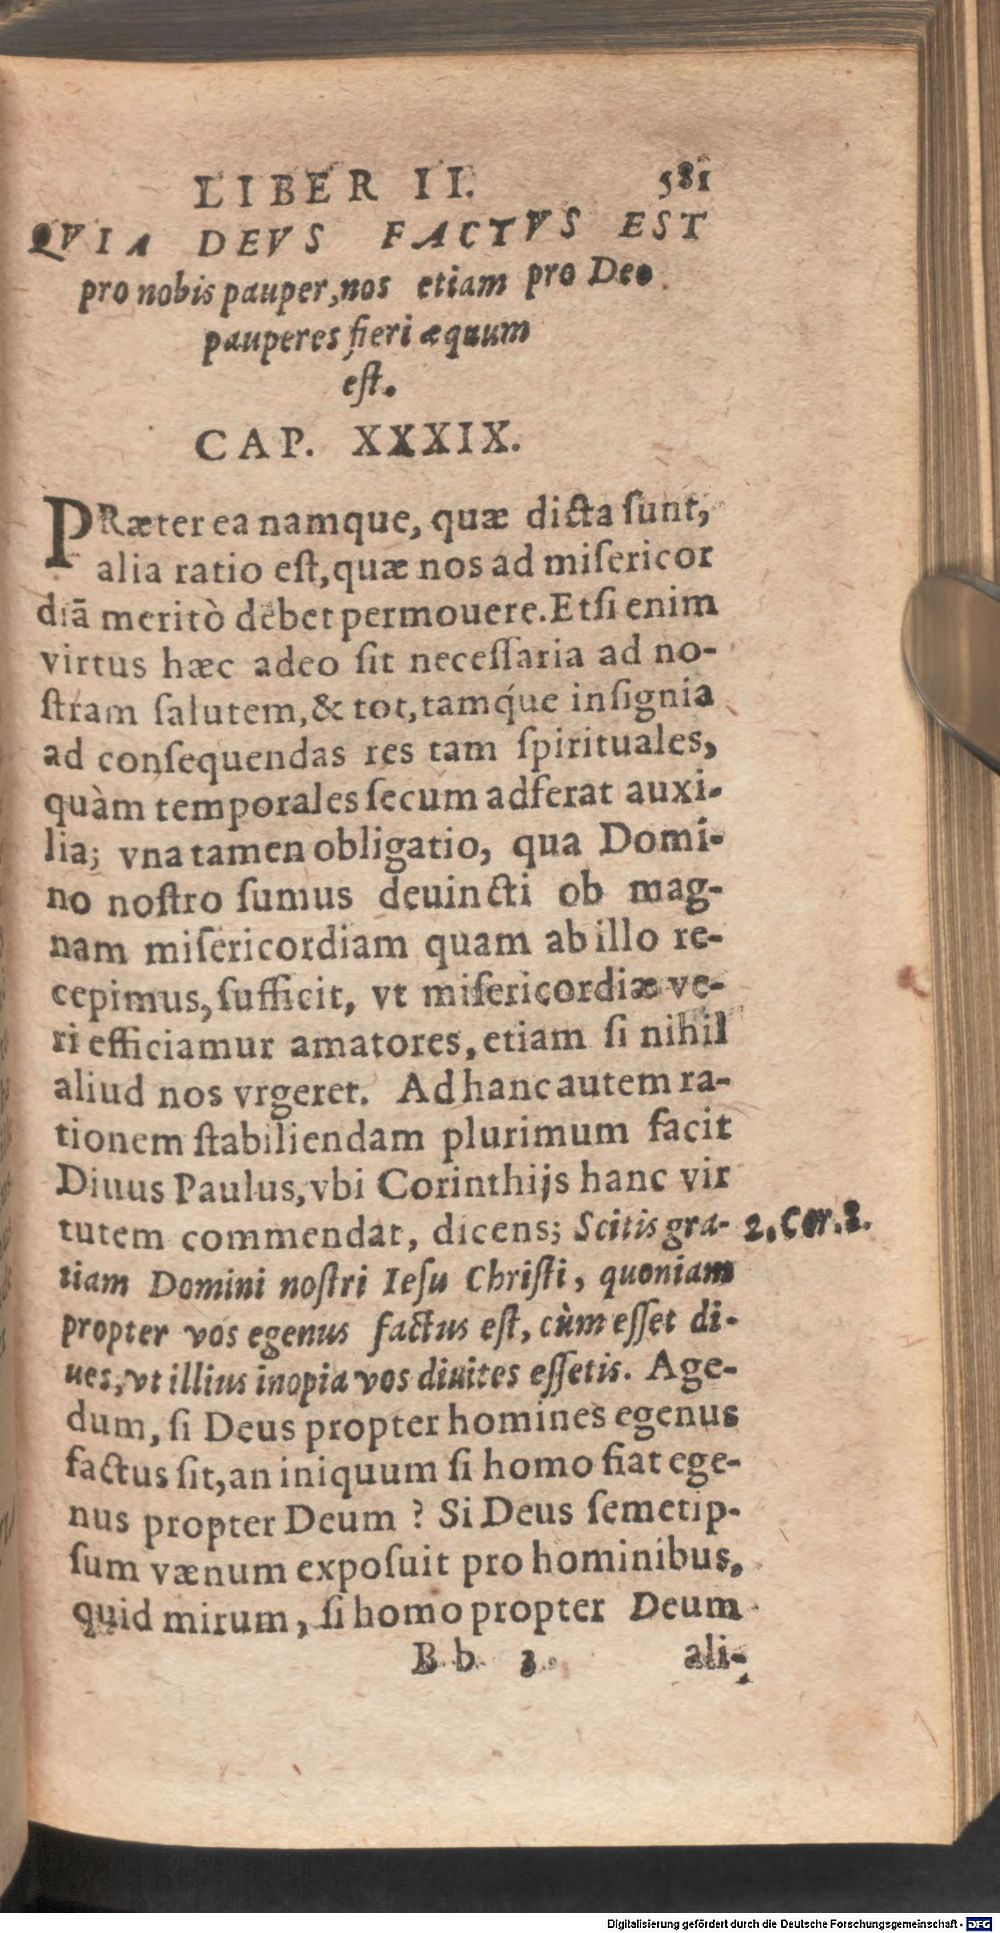 LIBER II. 581
QVIA DEVS FACTVS EST
pro nobis pauper, nos etiam pro Deo
pauperes fieri æquum
eſt.
CAP. XXXIX.
PRæter ea namque, quæ dicta ſunt,
alia ratio eſt, quæ nos ad miſericor
diā meritò debet permouere. Etſi enim
virtus hæc adeo ſit neceſſaria ad no-
ſtram ſalutem, & tot, tamq́ue inſignia
ad conſequendas res tam ſpirituales,
quàm temporales ſecum adferat auxi-
lia; vna tamen obligatio, qua Domi-
no noſtro ſumus deuincti ob mag-
nam miſericordiam quam ab illo re-
cepimus, ſufficit, vt miſericordiæ ve-
ri efficiamur amatores, etiam ſi nihil
aliud nos vrgeret. Ad hanc autem ra-
tionem ſtabiliendam plurimum facit
Diuus Paulus, vbi Corinthijs hanc vir
tutem commendat, dicens; Scitis gra- 2. Cor. 8.
tiam Domini noſtri Ieſu Chriſti, quoniam
propter vos egenus factus eſt, cùm eſſet di-
ues, vt illius inopia vos diuites eſſetis. Age-
dum, ſi Deus propter homines egenus
factus ſit, an iniquum ſi homo fiat ege-
nus propter Deum ? Si Deus ſemetip-
ſum vænum expoſuit pro hominibus,
quid mirum, ſi homo propter Deum
B b 3 ali-
Digitalisierung gefördert durch die Deutsche Forschungsgemeinschaft - DFG